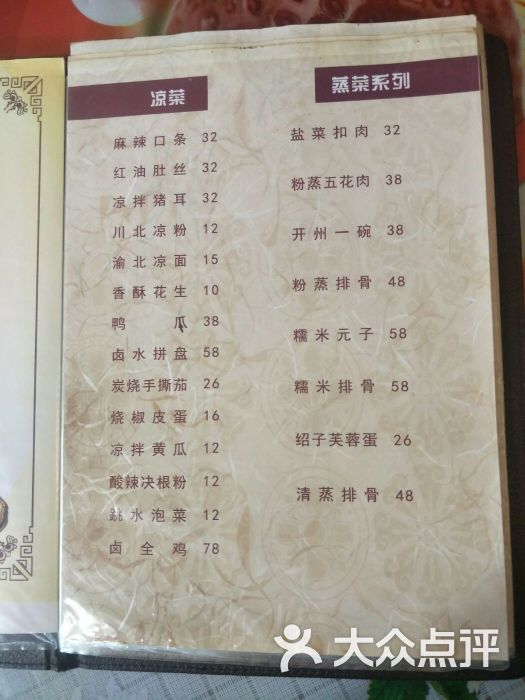 凉菜
麻辣口条 32
红油肚丝 32
凉拌猪耳 32
川北凉粉 12
渝北凉面 15
香酥花生 10
鸭 瓜 38
卤水拼盘 58
炭烧手撕茄 26
烧椒皮蛋 16
凉拌黄瓜 12
酸辣决根粉 12
跳水泡菜 12
卤全鸡 78
蒸菜系列
盐菜扣肉 32
粉蒸五花肉 38
开州一碗 38
粉蒸排骨 48
糯米元子 58
糯米排骨 58
绍子芙蓉蛋 26
清蒸排骨 48
大众点评